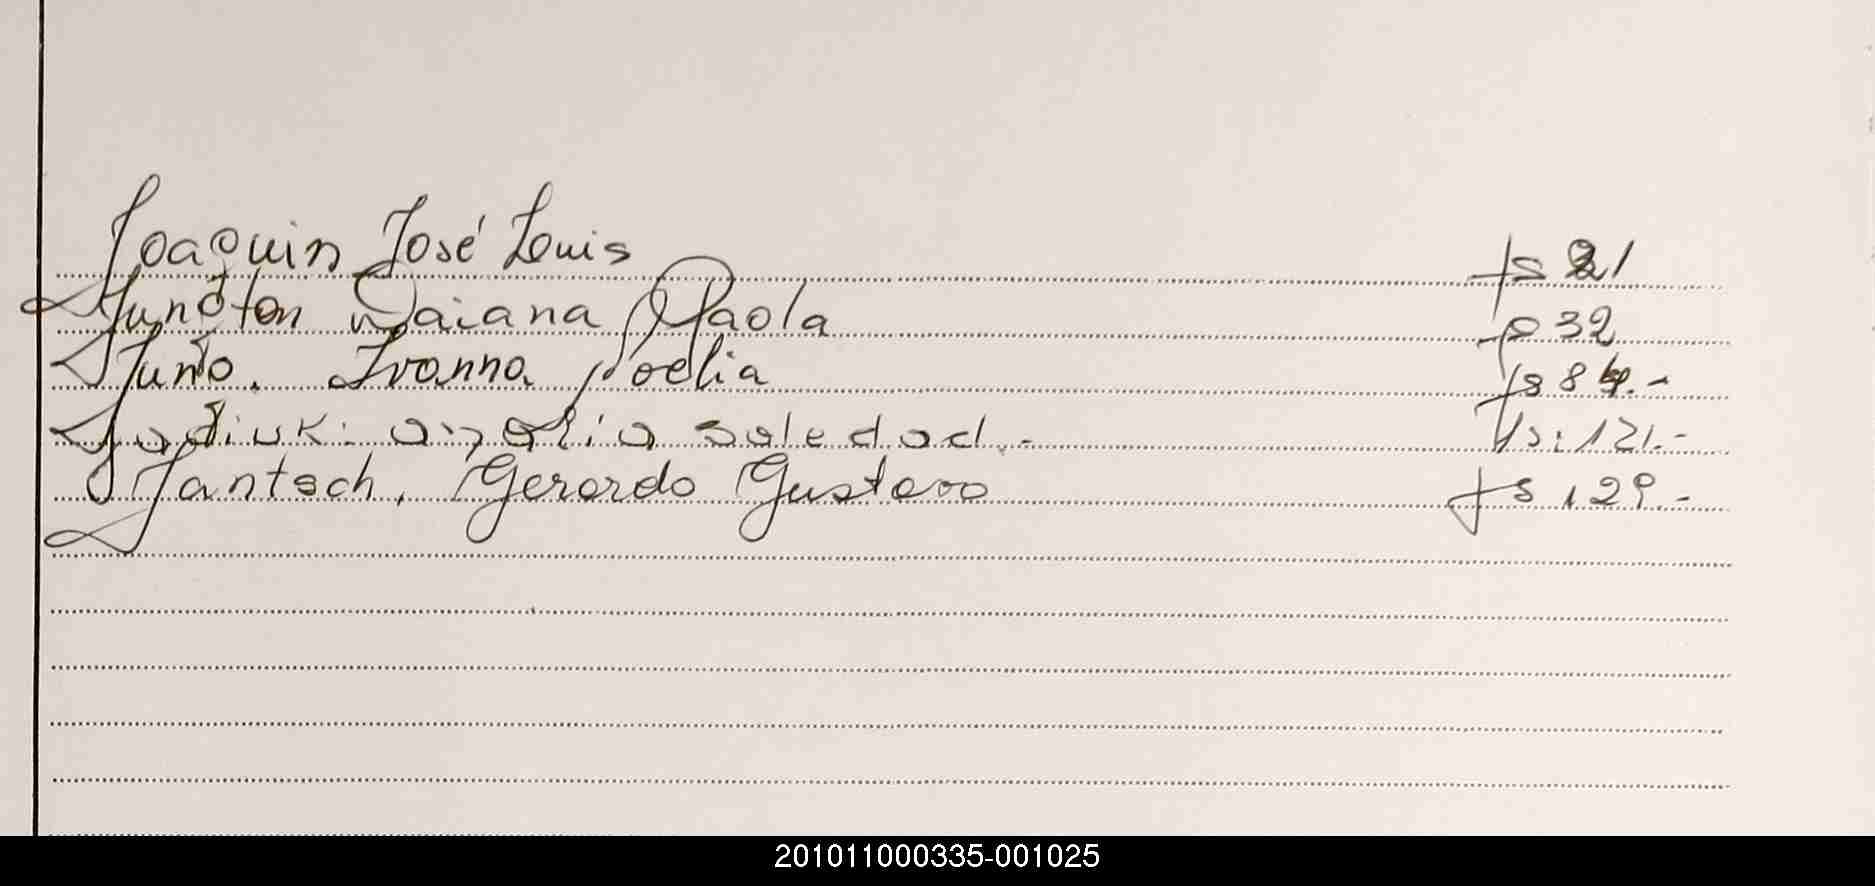 Joaquin José Louis fs 21
Juncton Daiana Paola fs 32
Junto. Ivanna Noelia fs 84.-
Jadiuk: analia soledad.- fs: 121.-
Jantsch, Gerardo Gustavo fs 129.-
201011000335-001025